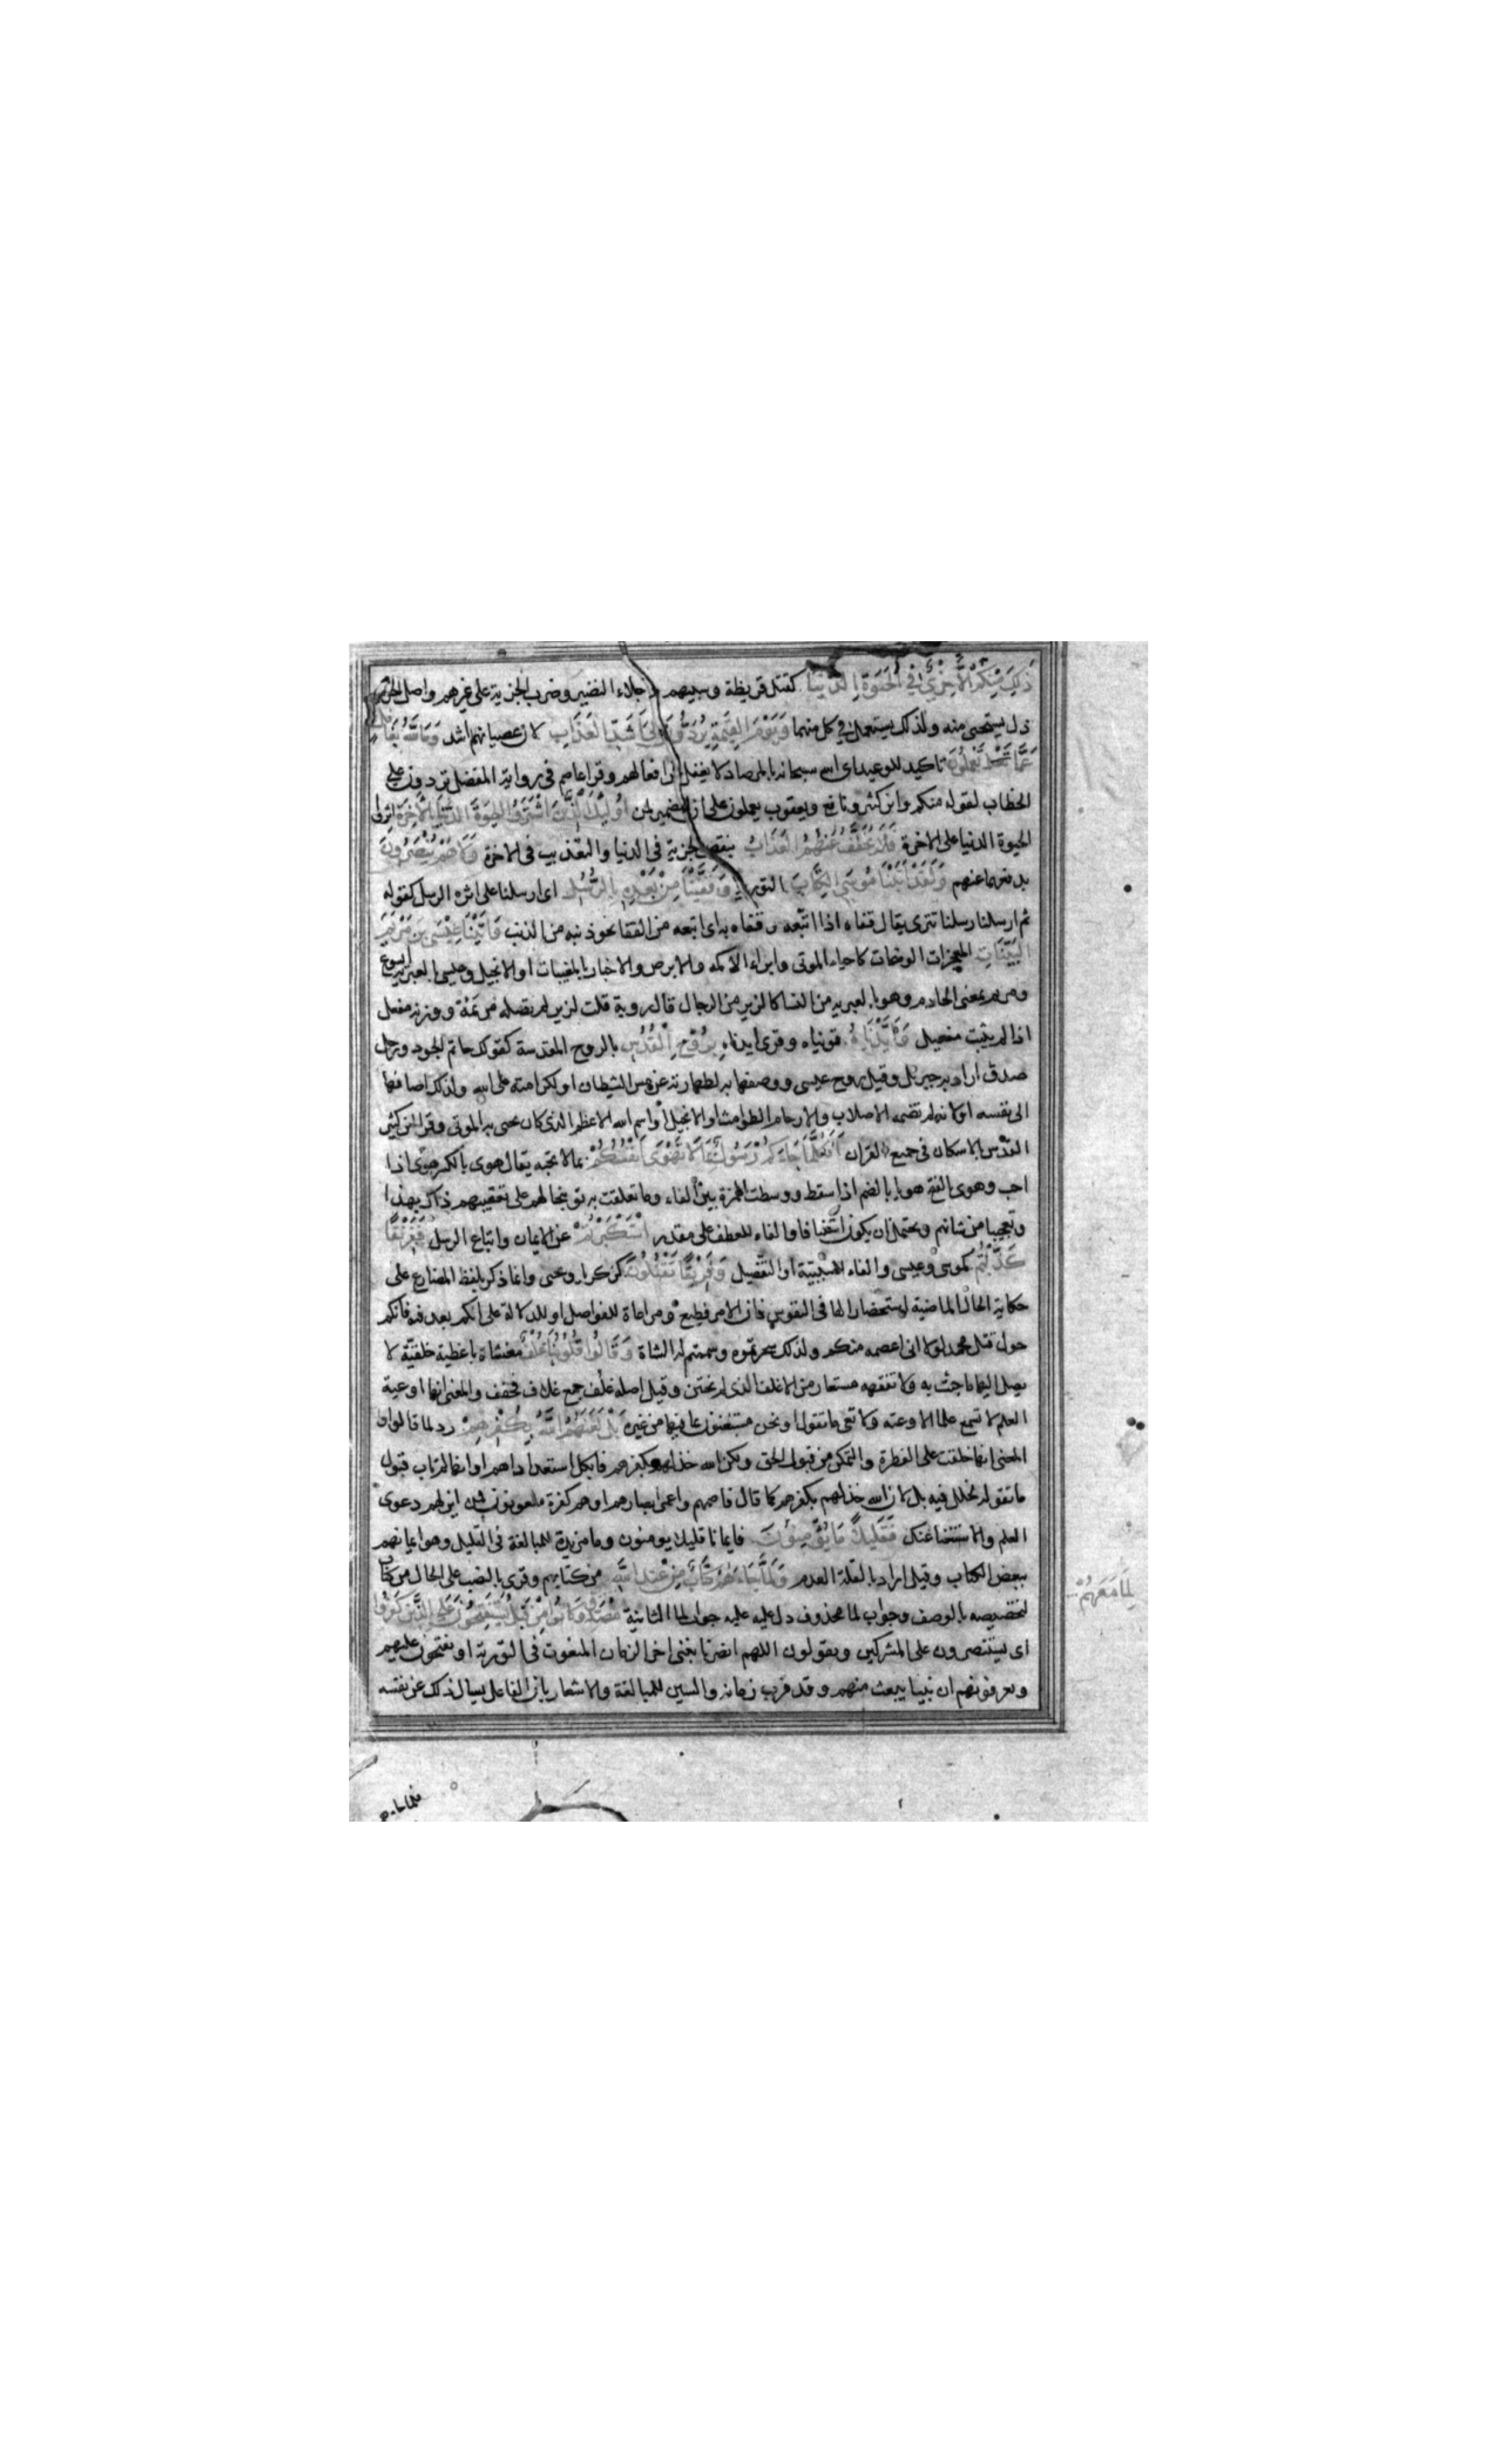 ذلك منكم الا خزي في الحيوة الدنيا كقتل قريظة وسبيهم واجلاء النضير وضرب الجزية على غيرهم واصل الخزي
ذل يستحيى منه ولذلك يستعمل في كل منهما ويوم القيمة يردون الى اشد العذاب لان عصيانهم اشد وما الله بغافل
عما تعملون تاكيد للوعيد اى انه سبحانه بالمرصاد لا يغفل عن افعالهم وقرا عاصم فى رواية المفضل تردون على
الخطاب لقوله منكم وابن كثير ونافع ويعقوب يعملون على ان الضمير لمن اولئك الذين اشتروا الحيوة الدنيا بالاخرة اثروا
الحيوة الدنيا على الاخرة فلا يخفف عنهم العذاب بنقص الجزية فى الدنيا والتعذيب فى الاخرة ولا هم ينصرون
بدفعهما عنهم ولقد اتينا موسى الكتاب التورية وقفينا من بعده بالرسل اى ارسلنا على اثره الرسل كقوله
ثم ارسلنا رسلنا تترى يقال قفاه اذا اتبعه وقفاه به اى اتبعه من القفا نحو ذنبه من الذنب واتينا عيسى بن مريم
البينات المعجزات الواضحات كاحياء الموتى وابراء الاكمه والابرص والاخبار بالمغيبات او الانجيل وعيسى بالعبرية ايسوع
ومريم بمعنى الخادم وهو بالعبرية من النسا كالزير من الرجال قال روبة قلت لزير لم تصله مريمة ووزنه مفعل
اذا لم يثبت مفعيل وايدناه قويناه وقرى ايدناه بروح القدس بالروح المقدسة كقولك حاتم الجود ورجل
صدق اراد به جبرئل وقيل روح عيسى ووصفها به لطهارته عن مس الشيطان او لكرامته على الله ولذلك اضافها
الى نفسه او لانه لم تضمه الاصلاب والارحام الطوامث او الانجيل او اسم الله الاعظم الذى كان يحيى به الموتى وقرا ابن كثير
القدس بالاسكان فى جميع القران افكلما جاءكم رسول بما لا تهوى انفسكم بما لا تحبه يقال هوى بالكسر هوى اذا
احب وهوى بالفتح هويا بالضم اذا سقط ووسطت الهمزة بين الفاء وما تعلقت به توبيخا لهم على تعقيبهم ذاك بهذا
وتعجيبا من شانهم ويحتمل ان يكون استينافا والفاء للعطف على مقدر استكبرتم عن الايمان واتباع الرسل ففريقا
كذبتم كموسى وعيسى والفاء للسببية او التفصيل وفريقا تقتلون كزكريا ويحيى وانما ذكر بلفظ المضارع على
حكاية الحال الماضية استحضارا لها فى النفوس فان الامر فظيع ومراعاة للفواصل او للدلالة على انكم بعد فيه فانكم
حول قتل محمد لولا انى اعصمه منكم ولذلك سحرتموه وسممتم له الشاة وقالوا قلوبنا غلف مغشاة باغطية خلقية لا
يصل اليها ما جئت به ولا تفقهه مستعار من الاغلف الذى لم يختن وقيل اصله غلف جمع غلاف فخفف والمعنى انها اوعية
العلم لا تسمع علما الا وعته ولا تعى ما تقول او نحن مستغنون بما فيها من غيره بل لعنهم الله بكفرهم رد لما قالوا
المعنى انها خلقت على الفطرة والتمكن من قبول الحق ولكن الله خذلهم بكفرهم فابطل استعدادهم او انها لم تاب قبول
ما تقوله لخلل فيه بل لان الله خذلهم بكفرهم كما قال فاصمهم واعمى ابصارهم او هم كفرة ملعونون فمن اين لهم دعوى
العلم والاستغنا عنك فقليلا ما يؤمنون فايمانا قليلا يومنون وما مزيدة للمبالغة فى التقليل وهو ايمانهم
ببعض الكتاب وقيل اراد بالقلة العدم ولما جاءهم كتاب من عند الله من كتابهم وقرى بالنصب على الحال من كتاب
لتخصيصه بالوصف وجواب لما محذوف دل عليه جواب لما الثانية مصدق وكانوا من قبل يستفتحون على الذين كفروا
اى يستنصرون على المشركين ويقولون اللهم انصرنا بنبى اخر الزمان المنعوت فى التورية او يفتحون عليهم
ويعرفونهم ان نبيا يبعث منهم وقد قرب زمانه والسين للمبالغة والاشعار بان الفاعل يسال ذلك عن نفسه
لما معهم
فلما جاءهم